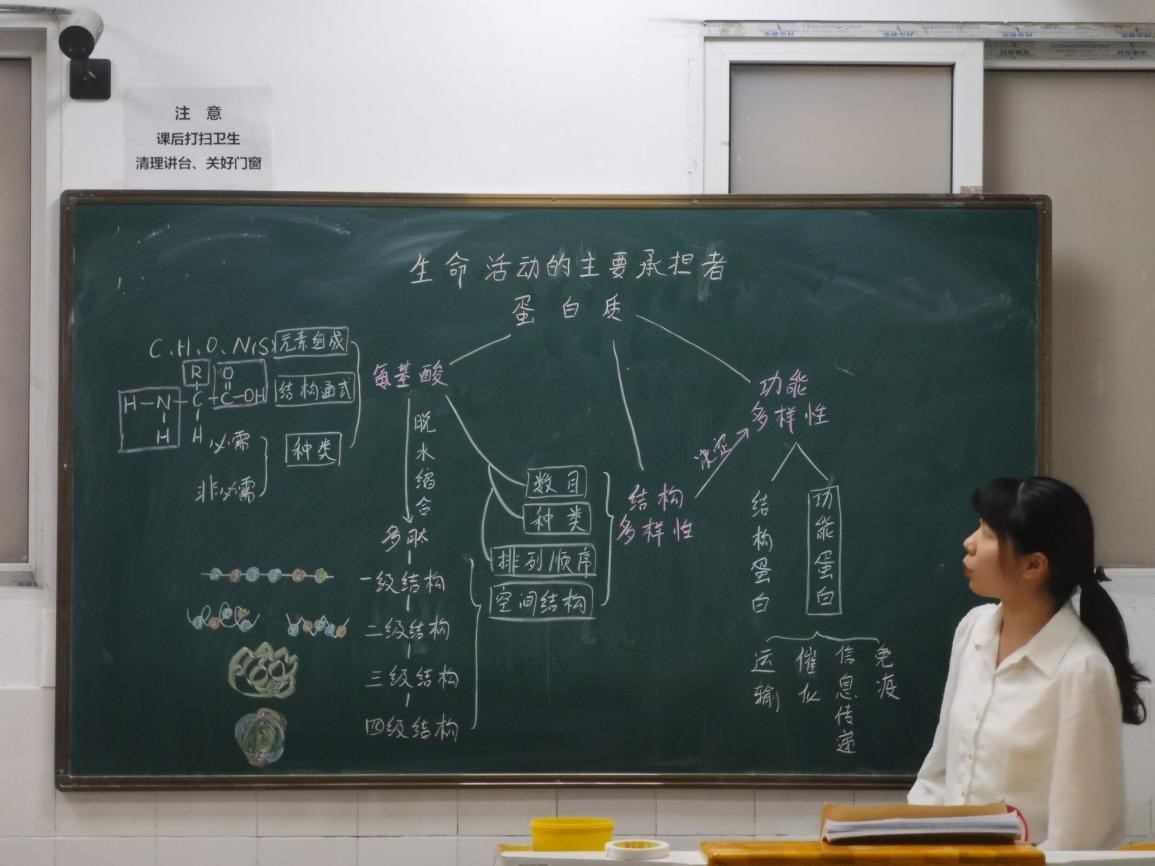 注 意
课后打扫卫生
清理讲台、关好门窗
生命活动的主要承担者
蛋白质
C、H、O、N、S
元素组成
R
O
H-N-C-C-OH
H
H
结构通式
必需
非必需
种类
氨基酸
脱水缩合
多肽
一级结构
二级结构
三级结构
四级结构
数目
种类
排列顺序
空间结构
结构
多样性
决定
功能
多样性
结构蛋白
功能蛋白
运输
催化
信息传递
免疫